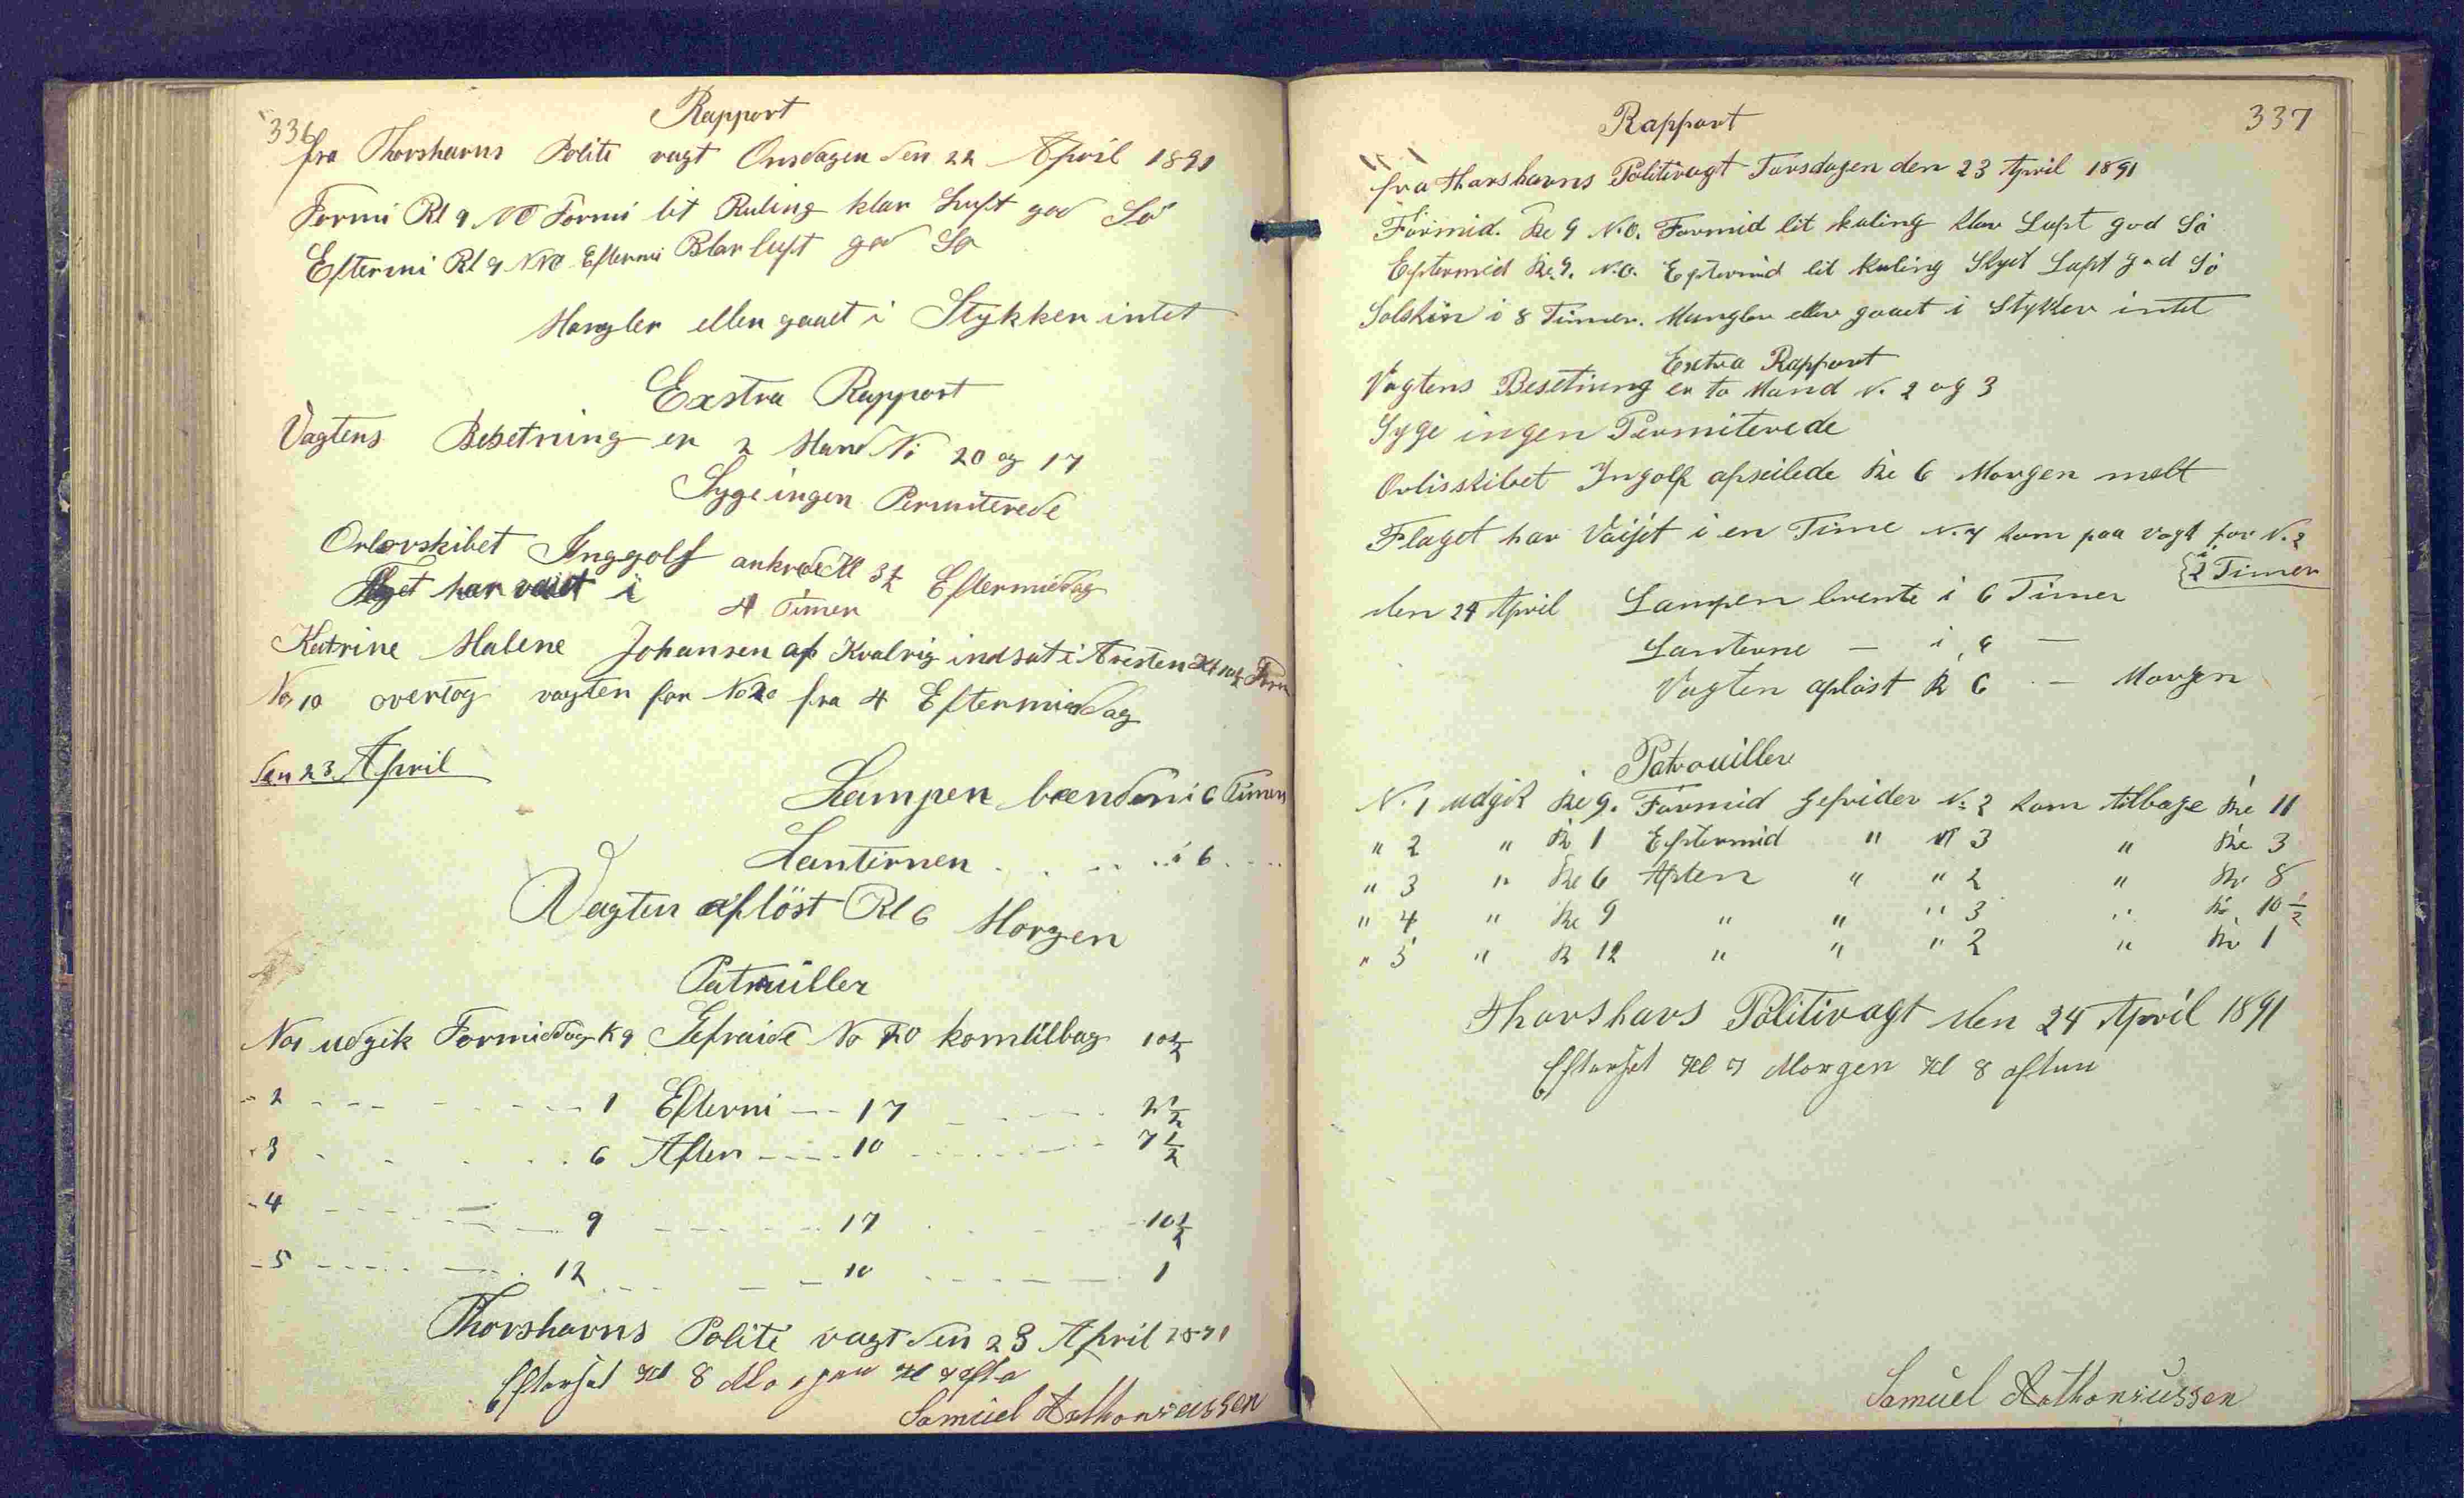 336
Rapport
fra Thorshavns Politi vagt Onsdagen den 22 April 1891
Formi Kl 9 NO Formi lit Kuling klar Luft god Sö
Eftermi Kl 9 NNO Eftermi Blar luft god Sö
Mangler eller gaaet i Stykker intet
Exstra Rapport
Vagtens Besetning er 2 Mand No 20 og 17
Syge ingen Permiterede
Orlovskibet Inggolf ankrede Kl 3½ Eftermiddag
Flaget har vaiet i 4 Timer
Katrine Malene Johansen af Kvalvig indsat i Aresten Kl 10½ Form
No 10 overtog vagten for No 20 fra 4 Eftermiddag
den 23 April
Lampen brenden i 6 Timer
Lanternen . . . . . i 6 . . .
Vagten aflöst Kl 6 Morgen
Patruiller
No 1 udgik Formiddag K 9 Gefraide No 20 kom tilbag 10½
- 2 - - - - - - 1 Eftermi - - 17 - - - 2½
- 3 . . . . . 6 Aften - - - - 10 - - - 7½
- 4 - - - - 9 - - - - 17 - - 10½
- 5 - - - - 12 - - - 10 - - - 1
Thorshavns Politi vagt den 23 April 1891
Efterset Kl 8 Morgen Kl 7 afte
Samuel Asthonsussen
337
Rapport
fra Thorshavns Politivagt Torsdagen den 23 April 1891
Formid. Kl 9 N.O. Formid lit kuling klar Luft god Sö
Eftermid Kl 9. N.O. Eftermid lit Kuling Skyet Luft god Sö
Solskin i 8 Timer. Mangler eller gaaet i Stykker intet
Extra Rapport
Vagtens Besetning er to Mand N. 2 og 3
Syge ingen Permiterede
Orlisskibet Ingolf afseilede Kl 6 Morgen melt
Flaget har Vaijet i en Time N. 4 kom paa vagt for N. 2
i 2 Timer
den 24 April Lampen brente i 6 Timer
Lanterne — i " —
Vagten aflöst K 6 — Morgen
Patrouiller
N. 1 udgik Kl 9. Formid Gefrider N: 2 kom tilbage Kl 11
" 2 " K 1 Eftermid " N 3 " Kl 3
" 3 " Kl 6 Aften " " 2 " Kl 8
" 4 " Kl 9 " " " 3 " Kl 10½
" 5 " K 12 " " " 2 " Kl 1
Thorshavs Politivagt den 24 April 1891
Efterset Kl 7 Morgen Kl 8 aften
Samuel Asthonsussen